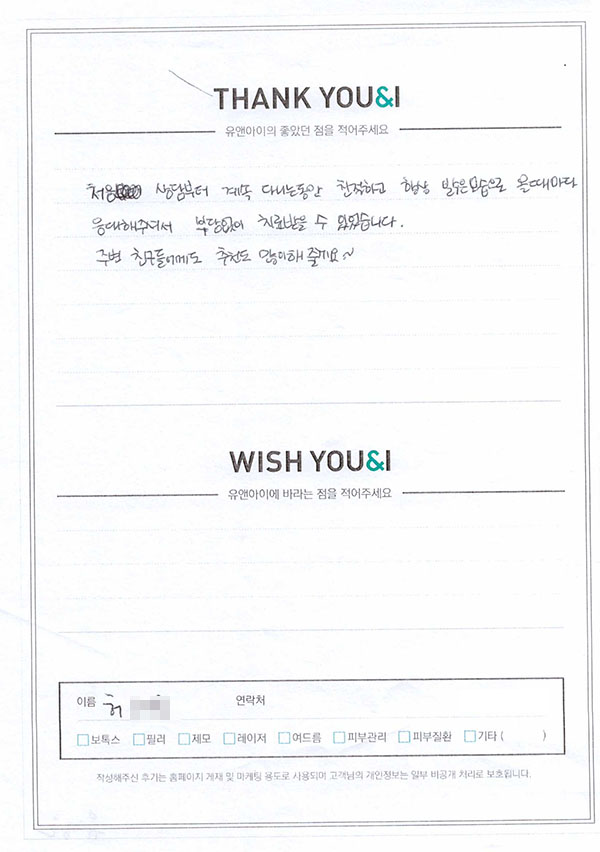 THANK YOU&I
유앤아이의 좋았던 점을 적어주세요
처음 상담부터 계속 다니는동안 친절하고 항상 밝은모습으로 올때마다
응대해주셔서 부담없이 치료받을 수 있었습니다.
주변 친구들에게도 추천도 많이해 줄게요~
WISH YOU&I
유앤아이에 바라는 점을 적어주세요
이름 허 연락처
보톡스 필러 제모 레이저 여드름 피부관리 피부질환 기타 ( )
작성해주신 후기는 홈페이지 게재 및 마케팅 용도로 사용되며 고객님의 개인정보는 일부 비공개 처리로 보호됩니다.